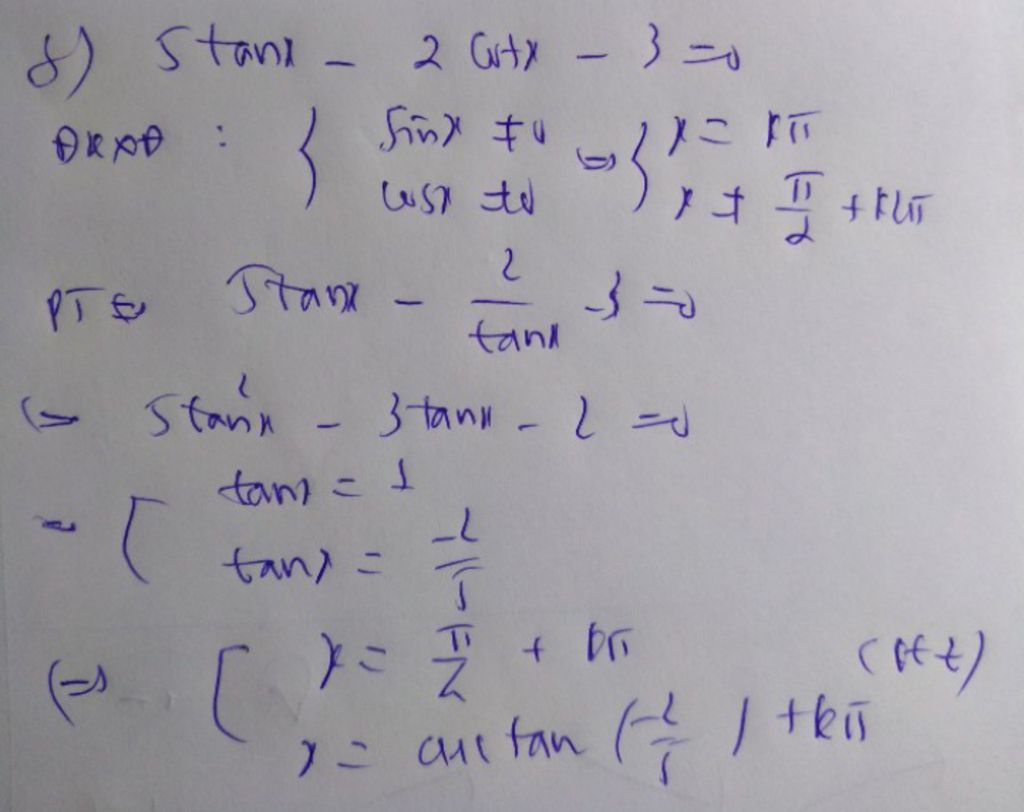 f) 5 tanx - 2 cotx - 3 = 0
ĐKXĐ : { sinx ≠ 0 ⇔ { x = kπ
cosx ≠ 0 x ≠ π/2 + k2π
PT ⇔ 5tanx - 2/tanx - 3 = 0
⇔ 5tan²x - 3tanx - 2 = 0
⇔ [ tanx = 1
tanx = -2/5
⇔ [ x = π/2 + kπ (k ∈ Z)
x = arctan (-2/5) + kπ